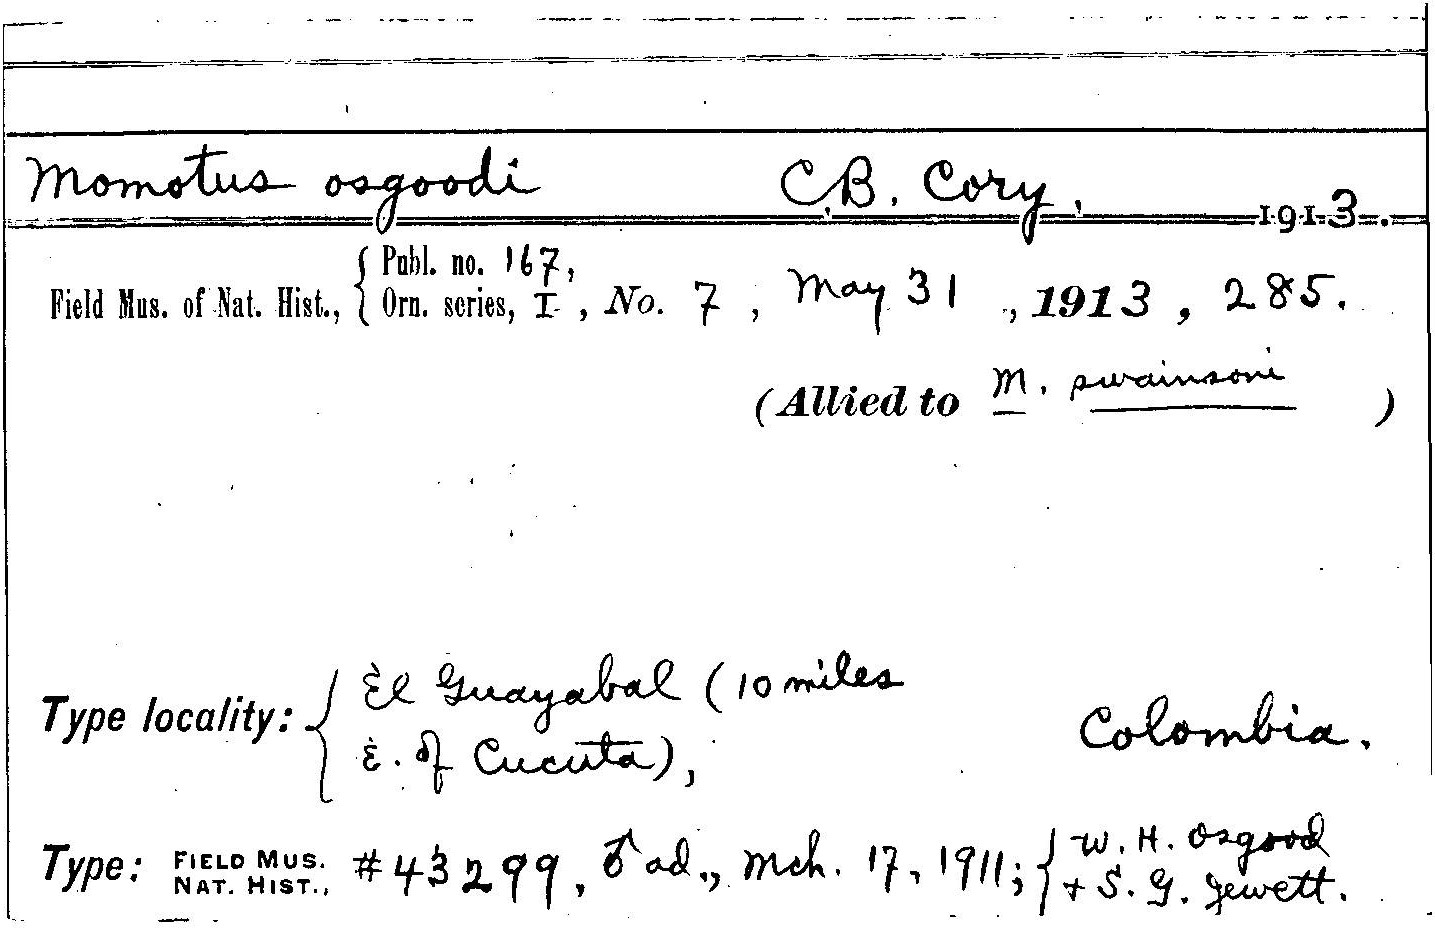 Momotus osgoodi C.B. Cory, 1913.
Publ. no. 167,
Field Mus. of Nat. Hist., Orn. series, I, No. 7, May 31, 1913, 285.
(Allied to M. swainsoni)
El Guayabal (10 miles
Type locality: E. of Cucuta), Colombia.
Type: FIELD MUS. NAT. HIST., #43299, ♂ ad., Mch. 17, 1911; W. H. Osgood
+ S. G. Jewett.